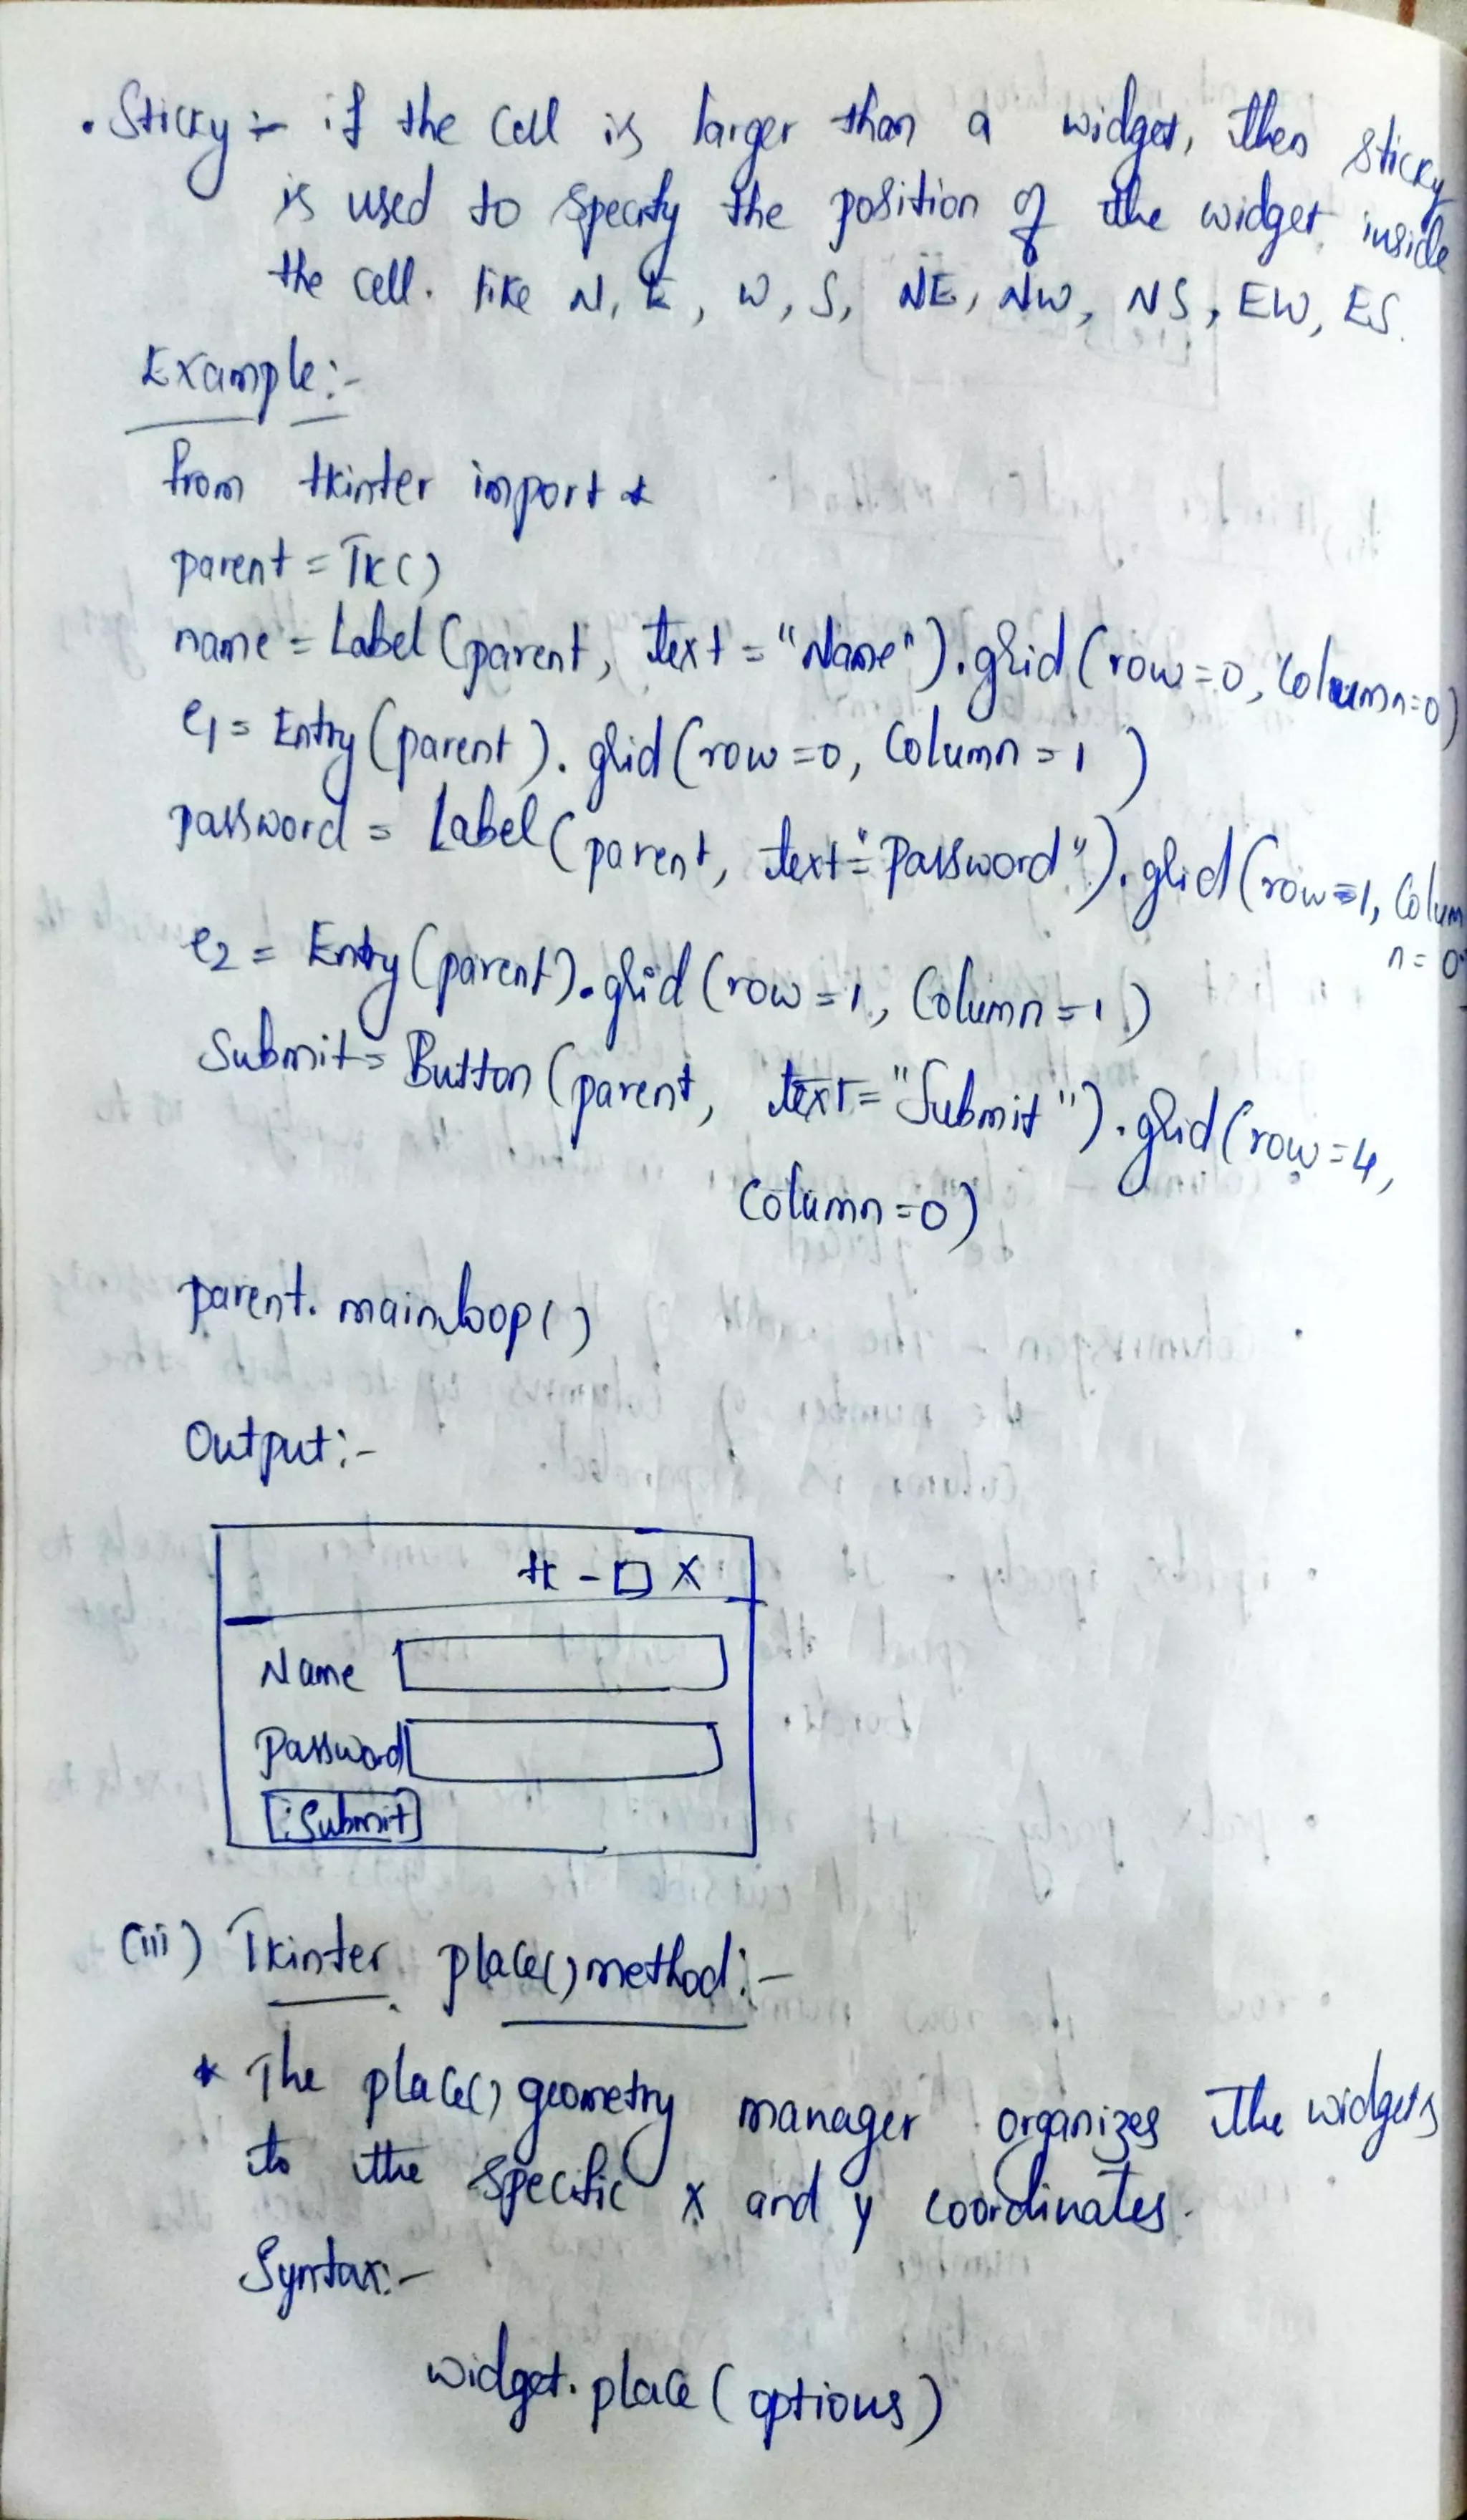 . Sticky :- if the Cell is larger than a widget, then sticky
is used to specify the position of the widget inside
the cell. like N, E, W, S, NE, NW, NS, EW, ES.
Example:-
from tkinter import *
parent = Tk()
name = Label (parent, text = "Name").grid (row=0, column=0)
e1 = Entry (parent). grid (row=0, Column = 1)
password = Label (parent, text="Password").grid (row=1, Colum
n=0)
e2 = Entry (parent).grid (row=1, Column=1)
Submit = Button (parent, text="Submit").grid (row=4,
Column=0)
parent. mainloop()
Output:-
tk - □ X
Name
Password
Submit
(iii) Tkinter place() method:-
* The place() geometry manager organizes the widgets
to the specific x and y coordinates.
Syntax:-
widget. place (options)